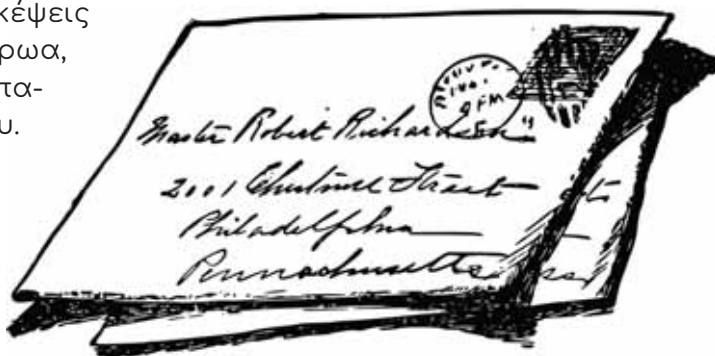 κέψεις
ρωα,
πα-
υ.
Master Robert Richardson
2001 Chestnut Street
Philadelphia
Pennachusetts